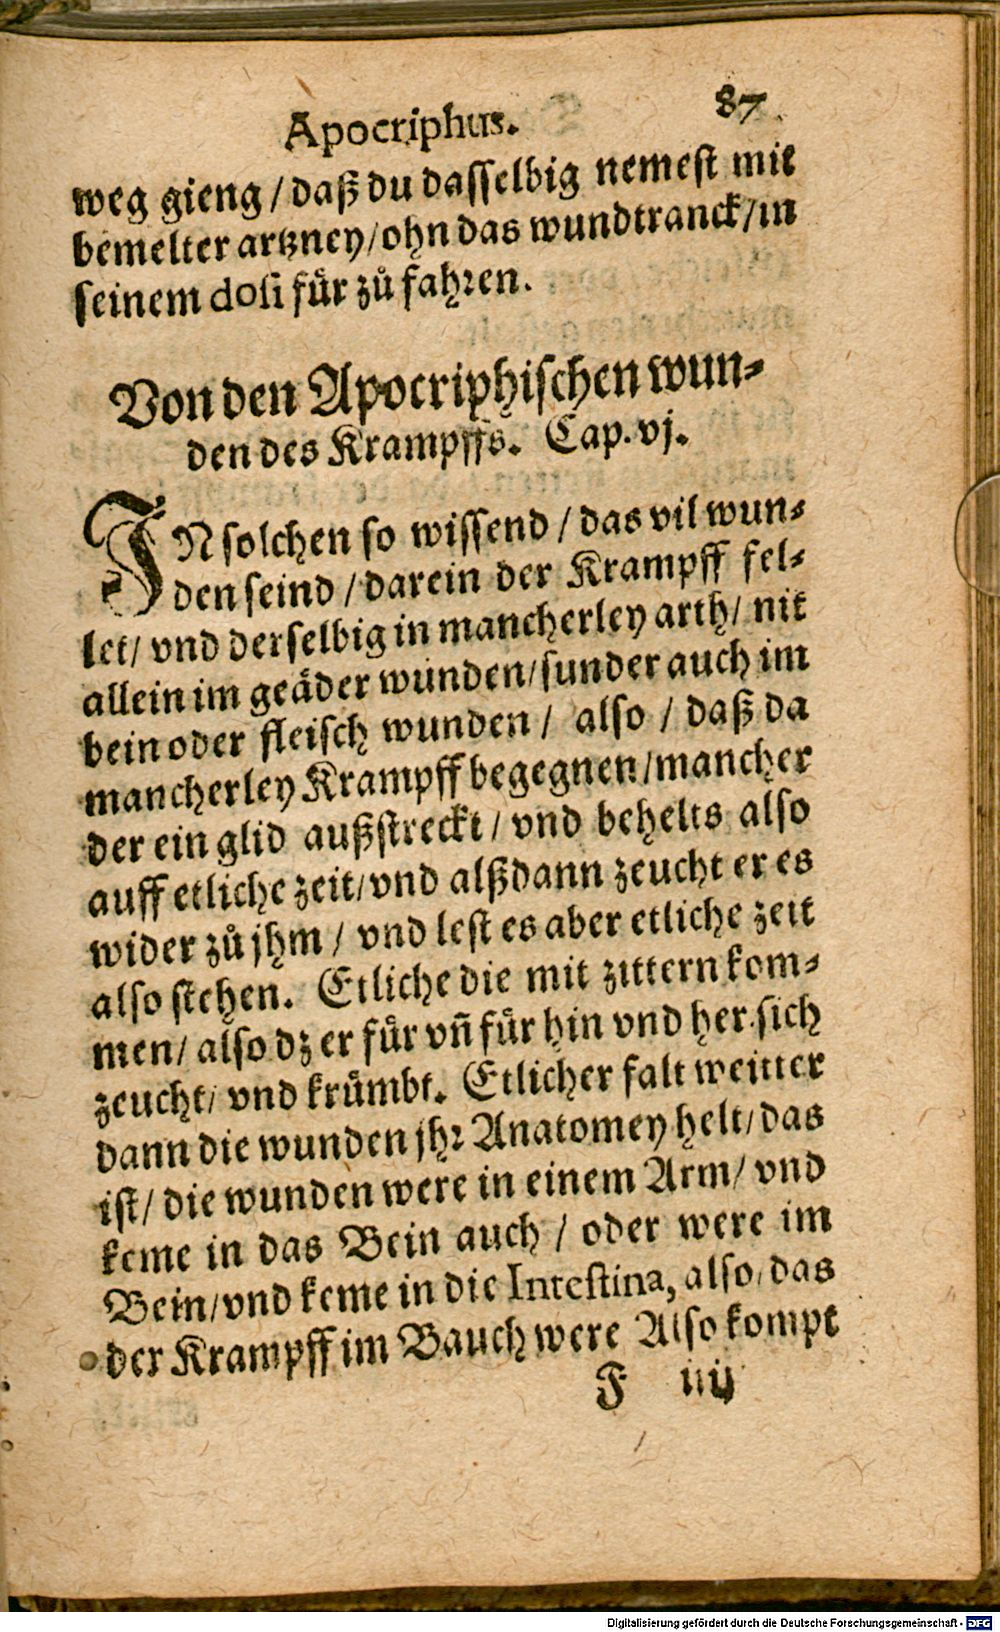 Apocriphus. 87
weg gieng / daß du dasselbig nemest mit
bemelter artzney / ohn das wundtranck / in
seinem dosi für zů fahren.
Von den Apocriphischen wun-
den des Krampffs. Cap. vj.
IN solchen so wissend / das vil wun-
den seind / darein der Krampff fel-
let / vnd derselbig in mancherley arth / nit
allein im geäder wunden / sunder auch im
bein oder fleisch wunden / also / daß da
mancherley Krampff begegnen / mancher
der ein glid außstreckt / vnd behelts also
auff etliche zeit / vnd alßdann zeucht er es
wider zů jhm / vnd lest es aber etliche zeit
also stehen. Etliche die mit zittern kom-
men / also dz er für vñ für hin vnd her sich
zeucht / vnd krümbt. Etlicher falt weitter
dann die wunden jhr Anatomey helt / das
ist / die wunden were in einem Arm / vnd
keme in das Bein auch / oder were im
Bein / vnd keme in die Intestina, also / das
der Krampff im Bauch were Also kompt
F iiij
Digitalisierung gefördert durch die Deutsche Forschungsgemeinschaft - DFG